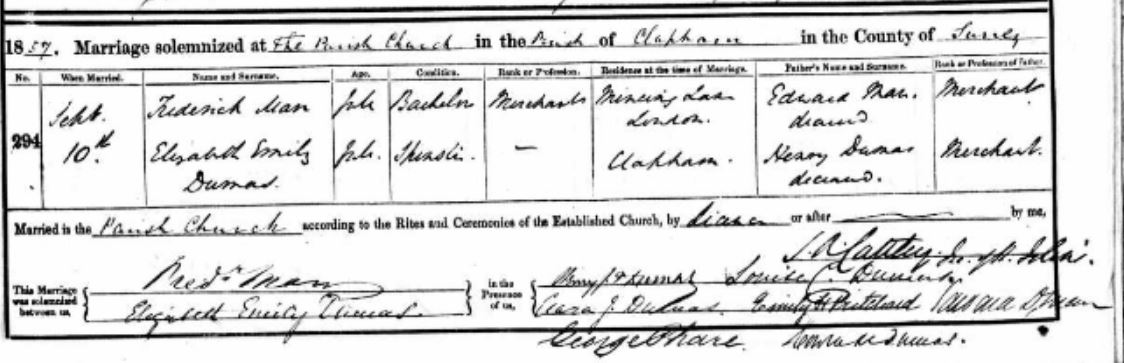 1857. Marriage solemnized at The Parish Church in the Parish of Clapham in the County of Surrey
No. When Married. Name and Surname. Age. Condition. Rank or Profession. Residence at the time of Marriage. Father's Name and Surname. Rank or Profession of Father.
294 Sept. 10th Frederick Man Full Bachelor Merchant Mincing Lane London. Edward Man. deceased Merchant
Elizabeth Emily Dumas. Full. Spinster. — Clapham. Henry Dumas deceased. Merchant.
Married in the Parish Church according to the Rites and Ceremonies of the Established Church, by licence or after by me,
This Marriage was solemnized between us, Fredk Man Elizabeth Emily Dumas. in the Presence of us, Henry Dumas Louise C
Clara J. Dumas. Emily Pritchard
George Dumas.